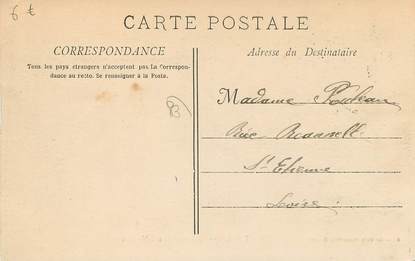 6 €
CARTE POSTALE
CORRESPONDANCE
Tous les pays étrangers n'acceptent pas la Correspon-
dance au recto. Se renseigner à la Poste.
Adresse du Destinataire
Madame
Rue
St Etienne
Loire